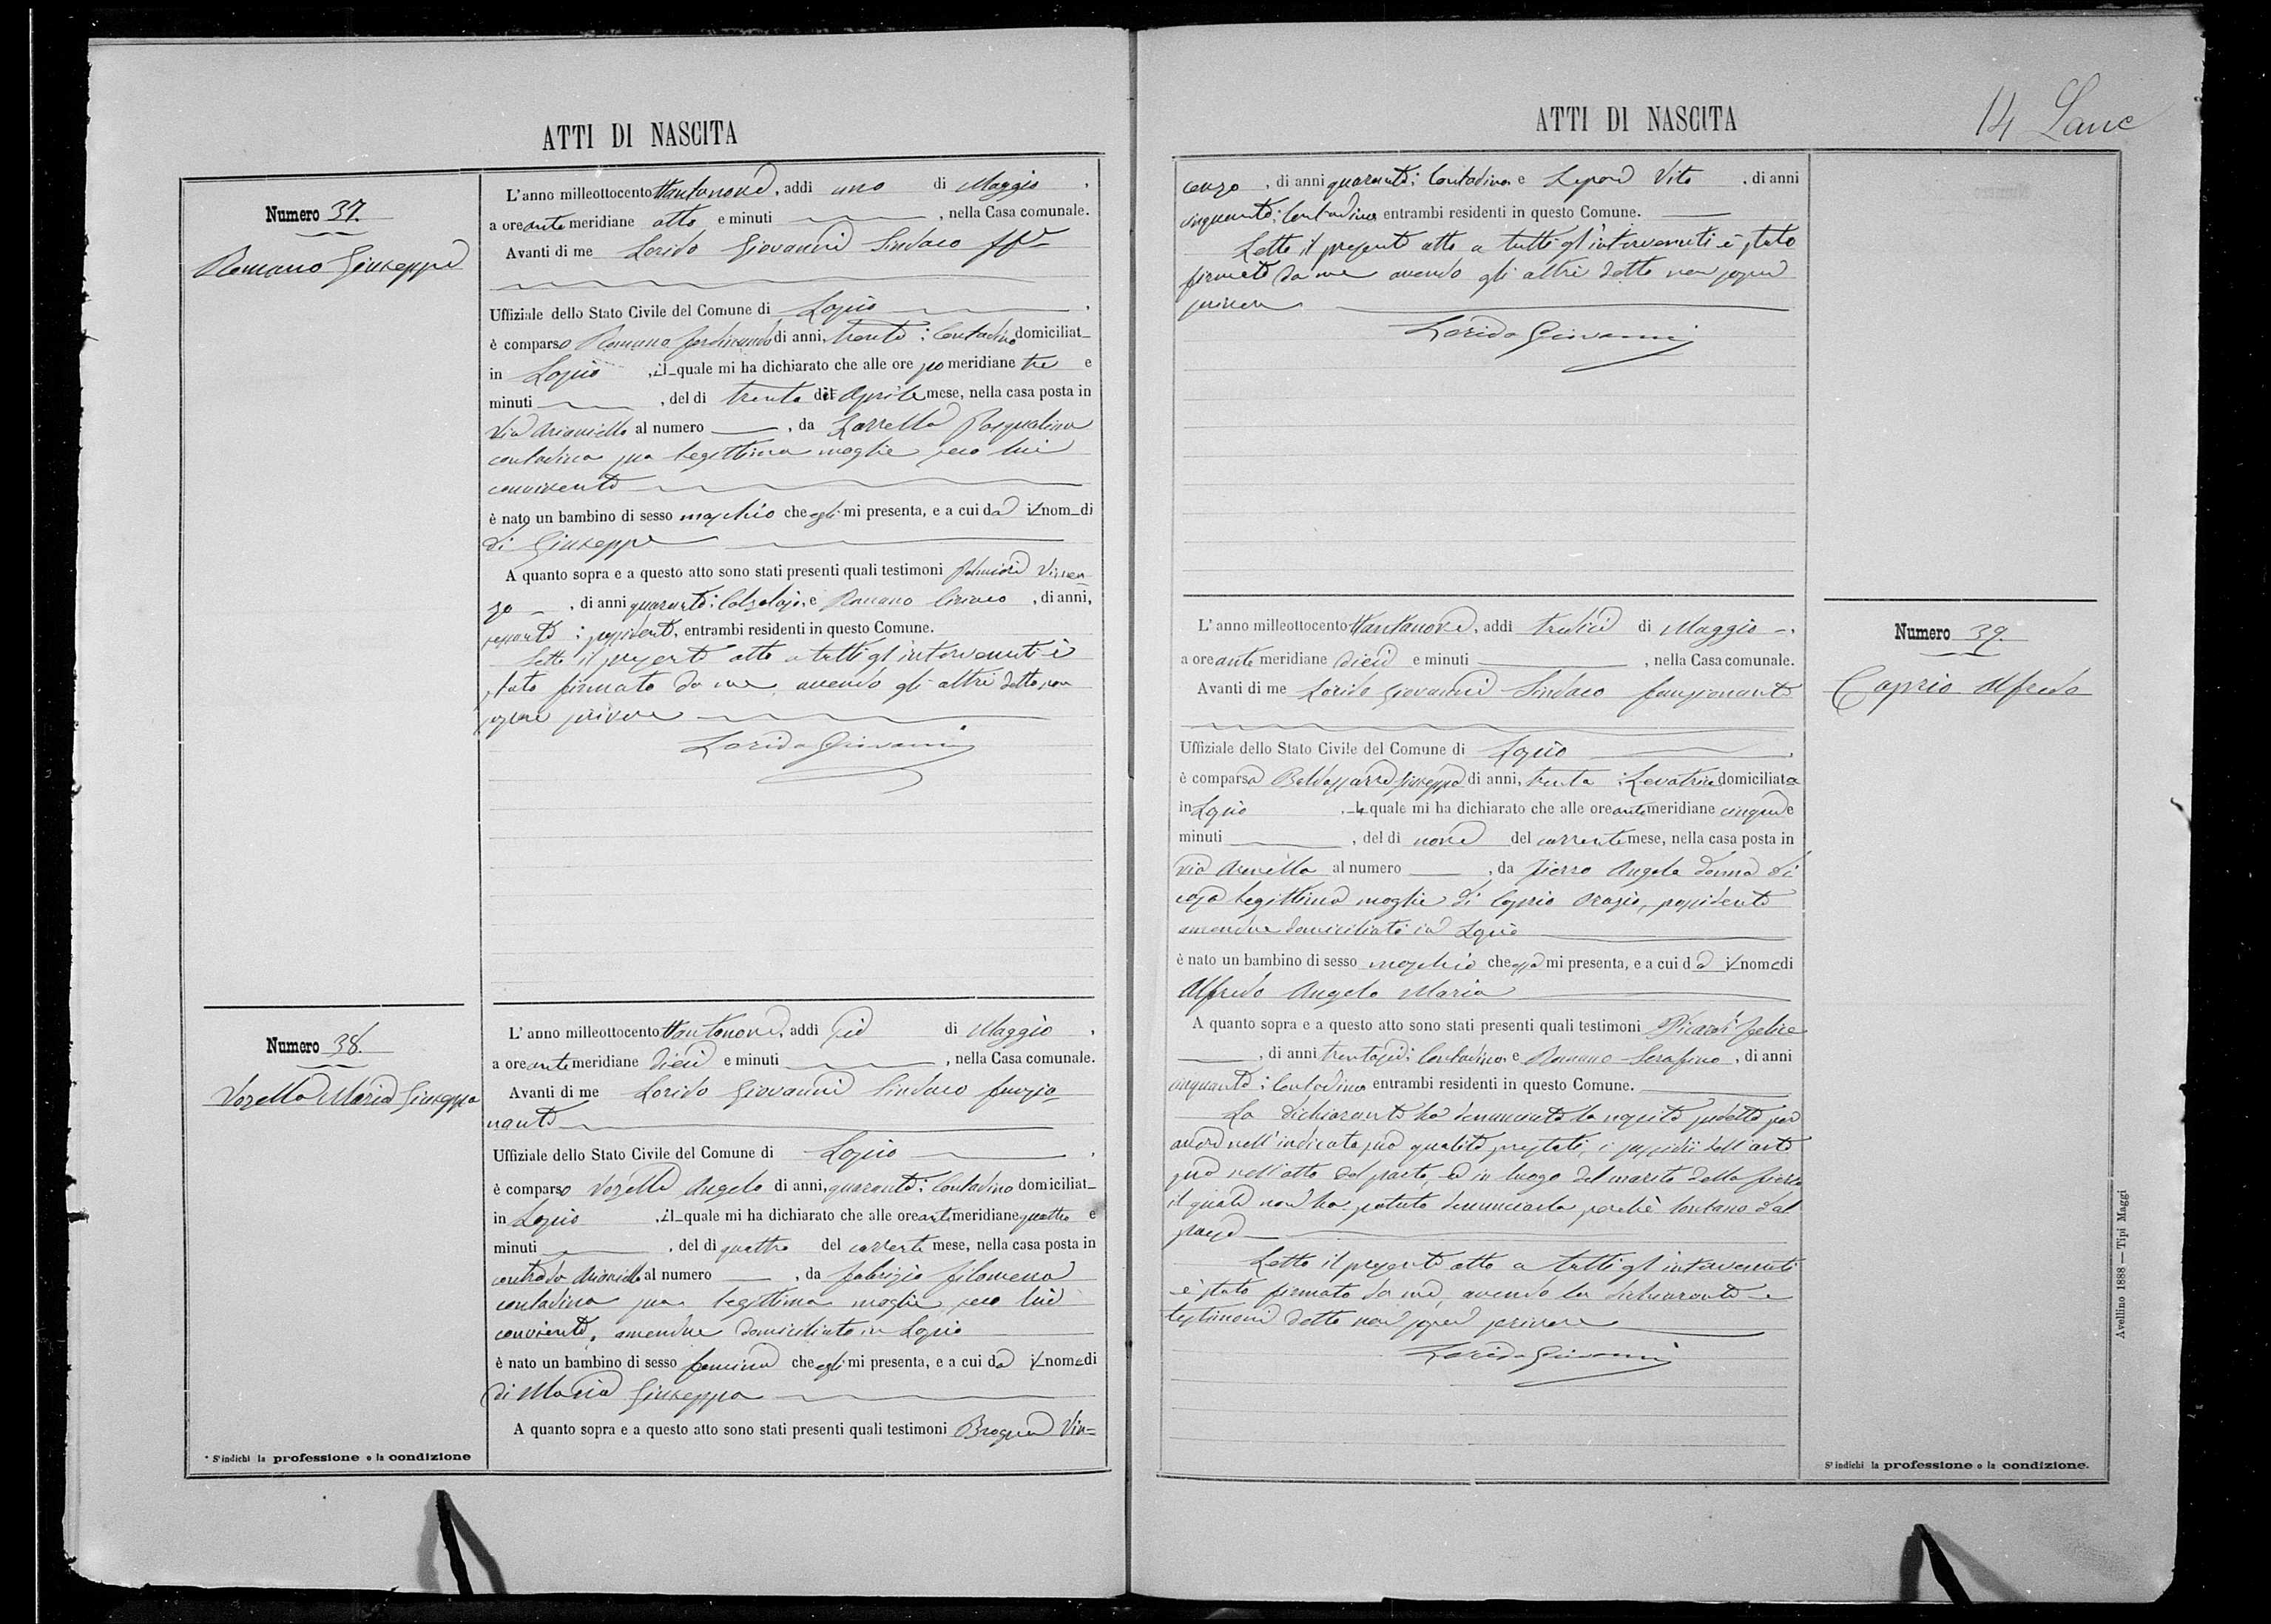 ATTI DI NASCITA
Numero 37.
Romano Giuseppe
L'anno milleottocento ottantanove, addì uno di Maggio,
a ore ante meridiane otto e minuti , nella Casa comunale.
Avanti di me Lorido Giovanni Sindaco ff
Uffiziale dello Stato Civile del Comune di Lapio
è comparso Romano Ferdinando di anni, trenta; Contadino domiciliat
in Lapio, il quale mi ha dichiarato che alle ore po meridiane tre e
minuti , del dì trenta di Aprile mese, nella casa posta in
Via Arianiello al numero , da Zarrella Pasqualina
contadina sua legittima moglie seco lui
convivente
è nato un bambino di sesso maschio che egli mi presenta, e a cui dà il nom di
di Giuseppe
A quanto sopra e a questo atto sono stati presenti quali testimoni Vincen-
zo, di anni quaranta; Calzolajo, e Romano Ciriaco, di anni,
sessanta; possidente, entrambi residenti in questo Comune.
Letto il presente atto a tutti gl'intervenuti è
stato firmato da me, avendo gli altri detto non
sapere scrivere
Lorido Giovanni
Numero 38.
Vozella Maria Giuseppa
L'anno milleottocento ottantanove, addì sei di Maggio,
a ore ante meridiane dieci e minuti , nella Casa comunale.
Avanti di me Lorido Giovanni Sindaco funzio
nante
Uffiziale dello Stato Civile del Comune di Lapio
è comparso Vozella Angelo di anni, quaranta; Contadino domiciliat
in Lapio, il quale mi ha dichiarato che alle ore ante meridiane quattro e
minuti , del dì quattro del corrente mese, nella casa posta in
contrada Arianiello al numero , da Fabrizio Filomena
contadina sua legittima moglie seco lui
convivente, amendue domiciliati in Lapio
è nato un bambino di sesso femina che egli mi presenta, e a cui dà il nome di
di Maria Giuseppa
A quanto sopra e a questo atto sono stati presenti quali testimoni Vin=
* S'indichi la professione o la condizione
ATTI DI NASCITA
14
cenzo, di anni quaranta; Contadino, e Lepore Vito, di anni
cinquanta; Contadino entrambi residenti in questo Comune.
Letto il presente atto a tutti gl'intervenuti è stato
firmato da me avendo gli altri detto non sapere
scrivere
Lorido Giovanni
L'anno milleottocento ottantanove, addì tredici di Maggio,
a ore ante meridiane dieci e minuti , nella Casa comunale.
Avanti di me Lorido Giovanni Sindaco funzionante
Uffiziale dello Stato Civile del Comune di Lapio
è comparsa Baldassarre Giuseppa di anni, trenta; Levatrice domiciliata
in Lapio, la quale mi ha dichiarato che alle ore ante meridiane cinque e
minuti , del dì nove del corrente mese, nella casa posta in
via Arenella al numero , da Fierro Angela donna di
casa legittima moglie di Caprio Orazio, possidente
amendue domiciliati in Lapio
è nato un bambino di sesso maschio che essa mi presenta, e a cui dà il nome di
Alfredo Angelo Maria
A quanto sopra e a questo atto sono stati presenti quali testimoni Picardi Felice
, di anni trentasei; Contadino, e Romano Serafino, di anni
cinquanta; Contadino entrambi residenti in questo Comune.
La dichiarante ha denunciato la nascita suddetta per
avere nell'indicata sua qualità prestati i sussidii dell'arte
sua nell'atto del parto, ed in luogo del marito della Fierro
il quale non ha potuto denunciarla perchè lontano dal
paese
Letto il presente atto a tutti gl'intervenuti
è stato firmato da me, avendo la dichiarante e
testimoni detto non sapere scrivere
Lorido Giovanni
Numero 39.
Caprio Alfredo
S'indichi la professione o la condizione.
Avellino 1888 — Tipi Maggi